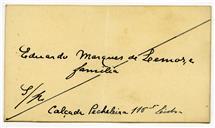 Eduardo Marques de Lemos, e
família
S/c
Calçada Pecheleira 116